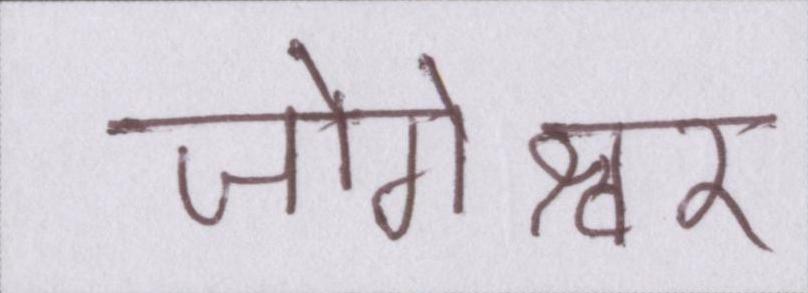 जोगेश्वर